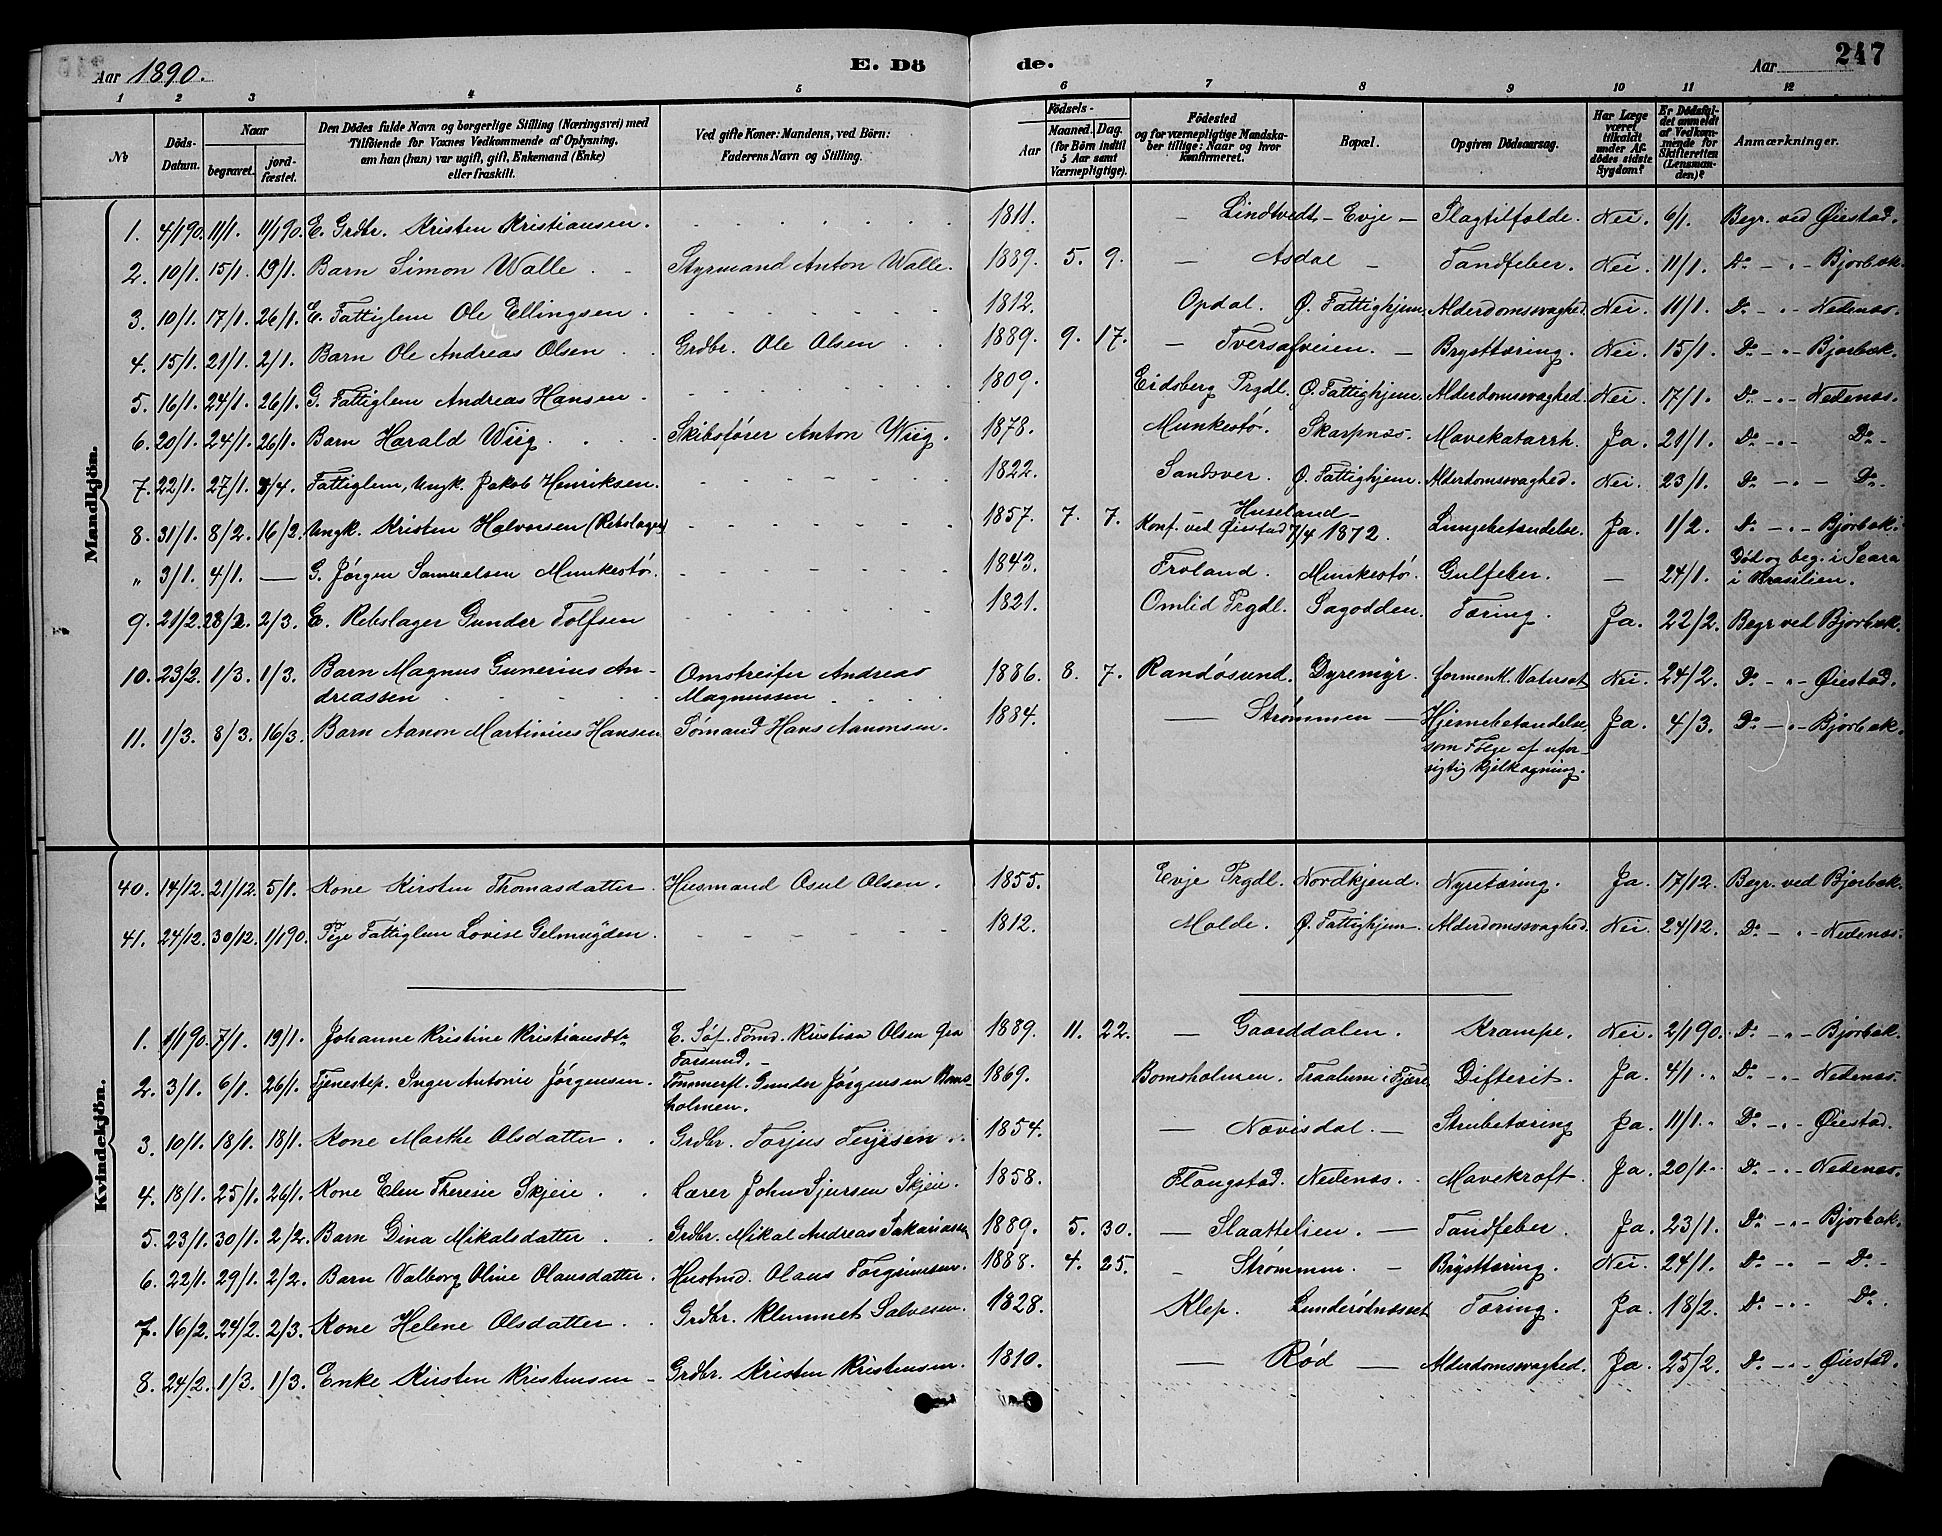 Aar 1890.
E. Dö
de.
Aar
247
1 2 3 4 5 6 7 8 9 10 11 12
No
Döds-Datum.
Naar
begravet.
jord-fæstet.
Den Dödes fulde Navn og borgerlige Stilling (Næringsvei) med
Tilföiende for Voxnes Vedkommende af Oplysning,
om han (hun) var ugift, gift, Enkemand (Enke)
eller fraskilt.
Ved gifte Koner: Mandens, ved Börn:
Faderens Navn og Stilling.
Födsels-
Aar
Maaned. Dag.
(for Börn indtil
5 Aar samt
Værnepligtige).
Födested
og for værnepligtige Mandska-
ber tillige: Naar og hvor
konfirmeret.
Bopæl.
Opgiven Dödsaarsag.
Har Læge
været
tilkaldt
under Af-
dödes sidste
Sygdom?
Er Dödsfal-
det anmeldt
af Vedkom-
mende for
Skifteretten
(Lensman-
den)?
Anmærkninger.
Mandkjön.
1. 4/1 90. 11/1. 11/1 90. E. Grdbr. Kristen Kristiansen. 1811. — Lindtvedt - Evje — Slagtilfælde. Nei. 6/1. Begr. ved Øiestad.
2. 10/1. 15/1. 19/1. Barn Simon Walle. Styrmand Anton Walle. 1889. 5. 9. — Asdal — Tandfeber. Nei. 11/1. Do - " - Bjorbæk.
3. 10/1. 17/1. 26/1. E. Fattiglem Ole Ellingsen. 1812. Opdal. Ø. Fattighjem. Alderdomssvaghed. Nei. 11/1. Do - " - Nedenæs.
4. 15/1. 21/1. 2/1. Barn Ole Andreas Olsen. Grdbr. Ole Olsen. 1889. 9. 17. — Tversafveien. — Brysttæring. Nei. 15/1. Do - " - Bjorbæk.
5. 16/1. 24/1. 26/1. G. Fattiglem Andreas Hansen. 1809. Eidsberg Prgdl. Ø. Fattighjem. Alderdomssvaghed. Nei. 17/1. Do - " - Nedenæs.
6. 20/1. 24/1. 26/1. Barn Harald Wiig. Skibsfører Anton Wiig. 1878. Munkestø. Skarpnæs. Mavekatarrh. Ja. 21/1. Do - " - Do -
7. 22/1. 27/1. 4/4. Fattiglem, Ungk. Jakob Henriksen. 1822. Sandsver. Ø. Fattighjem. Alderdomssvaghed. Nei. 23/1. Do - " - Do -
8. 31/1. 8/2. 16/2. Ungk. Kristen Halvorsen (Rebslager) 1857. 7. 7. — Huseland — Konf. ved Øiestad 7/4 1872. Lungebetændelse. Ja. 1/2. Do - " - Bjorbæk.
" 3/1. 4/1. — G. Jørgen Samuelsen Munkestø. 1843. Froland. Munkestø. Gulfeber. — 24/1. Død og beg. i Seara
i Brasilien.
9. 21/2. 28/2. 2/3. E. Rebslager Gunder Tolfsen 1821. Omlid Prgdl. Sagodden. Tæring. Ja. 22/2. Begr. ved Bjorbæk.
10. 23/2. 1/3. 1/3. Barn Magnus Gunerius An-
dreassen Omstreifer Andreas
Magnussen 1886. 8. 7. Randøsund. Dyremyr. formentl. Vatersot Nei. 24/2. Do - " - Øiestad.
11. 1/3. 8/3. 16/3. Barn Aanon Martinius Hansen Sømand Hans Aanonsen. 1884. — Strømmen — Hjernebetændelse,
som Følge af ufor-
sigtig Kjelkagning. Ja. 4/3. Do - " - Bjorbæk.
Kvindekjön.
40. 14/12. 21/12. 5/1. Kone Kirsten Thomasdatter. Husmand Osul Olsen. 1855. Evje Prgdl. Nordkjend. Nyretæring. Ja. 17/12. Begr. ved Bjorbæk.
41. 24/12. 30/12. 1/1 90. Pige Fattiglem Lovise Gelmuyden. 1812. Molde. Ø. Fattighjem. Alderdomssvaghed. Nei. 24/12. Do - " - Nedenæs.
1. 1/1 90. 7/1. 19/1. Johanne Kristine Kristiansdtr E. Søf. Tømd. Kristian Olsen fra
Farsund. 1889. 11. 22. — Gaarddalen. Krampe. Nei. 2/1 90. Do - " - Bjorbæk.
2. 3/1. 6/1. 26/1. Tjenestep. Inger Antonie Jørgensen. Tømmerfl. Gunder Jørgensen Boms-
holmen. 1869. Bomsholmen. Traalum i Fjære Difterit. Ja. 4/1. Do - " - Nedenæs.
3. 10/1. 18/1. 18/1. Kone Marthe Olsdatter. Grdbr. Torjus Terjesen 1854. — Nævisdal. — Strubetæring Ja. 11/1. Do - " - Øiestad.
4. 18/1. 25/1. 26/1. Kone Elen Theresie Skjeie. Lærer John Sjursen Skjeie. 1858. Flangstad. Nedenæs. Mavekræft. Ja. 20/1. Do - " - Nedenæs.
5. 23/1. 30/1. 2/2. Barn Dina Mikalsdatter. Grdbr. Mikal Andreas Sakariasen 1889. 5. 30. — Slaattelien. — Tandfeber. Ja. 23/1. Do - " - Bjorbæk.
6. 22/1. 29/1. 2/2. Barn Valborg Oline Olausdatter. Hustmd. Olaus Torgrimsen. 1888. 4. 25. — Strømmen. — Brysttæring. Nei. 24/1. Do - " - Do -
7. 16/2. 24/2. 2/3. Kone Helene Olsdatter. Grdbr. Klemmet Salvesen. 1828. Klep. Lunderødnæsset Tæring. Ja. 18/2. Do - " - Do.
8. 24/2. 1/3. 1/3. Enke Kirsten Kristensen Grdbr. Kristen Kristensen. 1810. — Rød — Alderdomssvaghed. Ja. 25/2. Do - " - Øiestad.